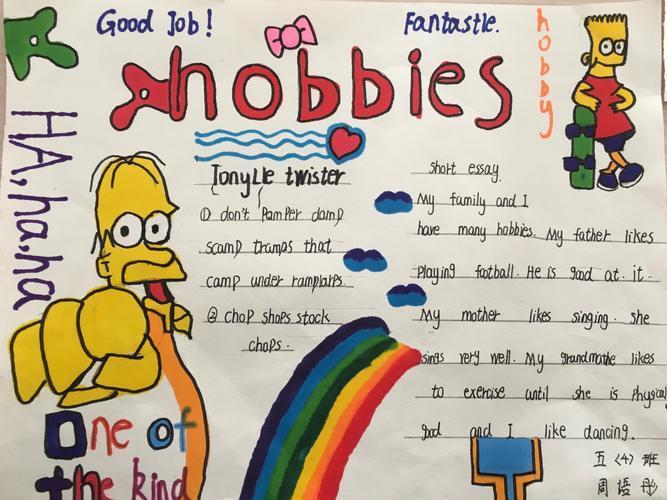 Good Job!
Fantastle.
hobbies
hobby
HA, ha, ha
Tongue twister
① don't pamper damp
scamp tramps that
camp under ramplarps
② chop shops stock
chops.
short essay
My family and I
have many hobbies. My father likes
playing football. He is good at. it.
My mother likes singing. she
sings very well. My grandmathe likes
to exercise until she is physical
good and I like dancing.
One of
the kind
五〈4〉班
周语彤